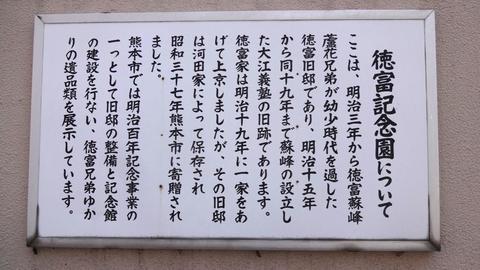 徳富記念園について
ここは、明治三年から徳富蘇峰
蘆花兄弟が幼少時代を過した
徳富旧邸であり、明治十五年
から同十九年まで蘇峰の設立し
た大江義塾の旧跡であります。
徳富家は明治十九年に一家をあ
げて上京しましたが、その旧邸
は河田家によって保存され
昭和三十七年熊本市に寄贈され
ました。
熊本市では明治百年記念事業の
一つとして旧邸の整備と記念館
の建設を行ない、徳富兄弟ゆか
りの遺品類を展示しています。